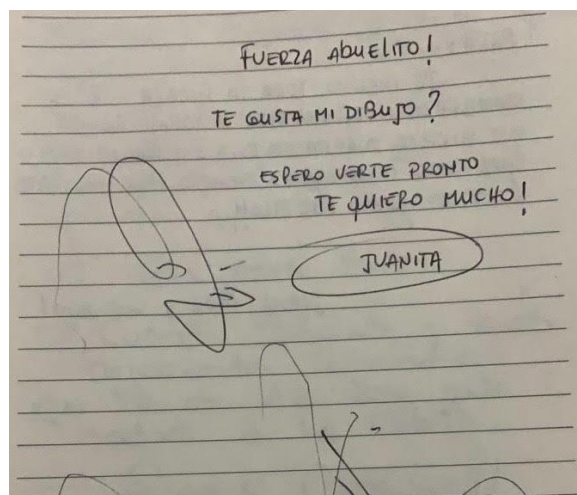 FUERZA ABUELITO!
TE GUSTA MI DIBUJO?
ESPERO VERTE PRONTO
TE QUIERO MUCHO!
JUANITA